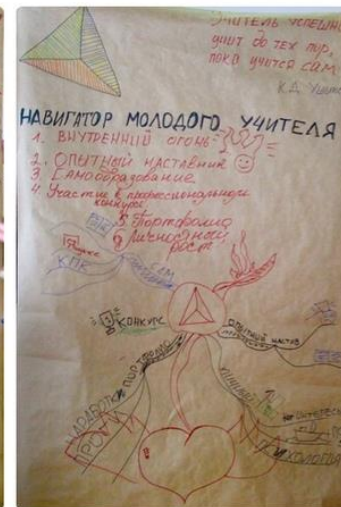 УЧИТЕЛЬ УСПЕШНО
УЧИТ ДО ТЕХ ПОР,
ПОКА УЧИТСЯ САМ
К.Д.
НАВИГАТОР МОЛОДОГО УЧИТЕЛЯ
1. ВНУТРЕННИЙ ОГОНЬ
2. ОПЫТНЫЙ НАСТАВНИК
3. САМООБРАЗОВАНИЕ
4. Участие в профессиональном
конкурсе
5. Портфолио
6 Личностный
рост
КПК
КОНКУРС
ОПЫТНЫЙ НАСТАВ
ПОРТФОЛИО
НАРАБОТКИ
ПСИХОЛОГИЯ